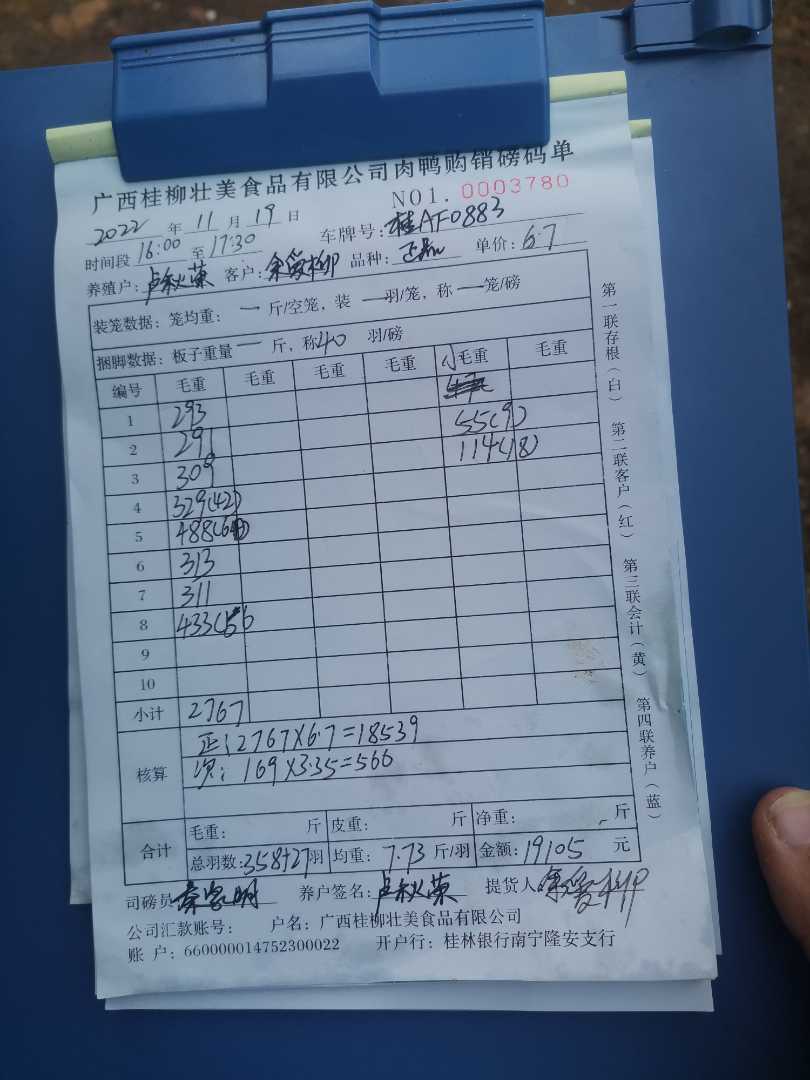 广西桂柳壮美食品有限公司肉鸭购销磅码单
2022 年 11 月 19 日 NO1. 0003780
时间段 16:00 至 17:30 车牌号: 桂AF0883
养殖户: 卢秋荣 客户: 品种: 正品 单价: 6.7
装笼数据: 笼均重: 一 斤/空笼, 装 一 羽/笼, 称 一 笼/磅
捆脚数据: 板子重量 一 斤, 称 40 羽/磅
编号 毛重 毛重 毛重 毛重 小毛重 毛重
1 293 55(9)
2 291 114(18)
3 309
4 329(42)
5 488
6 313
7 311
8 433(56
9
10
小计 2767
核算 正: 2767X6.7=18539
次: 169X3.35=566
合计 毛重: 斤 皮重: 斤 净重: 斤
总羽数: 358+27 羽 均重: 7.73 斤/羽 金额: 19105 元
司磅员 养户签名: 卢秋荣 提货人
公司汇款账号: 户名: 广西桂柳壮美食品有限公司
账 户: 660000014752300022 开户行: 桂林银行南宁隆安支行
第一联存根(白) 第二联客户(红) 第三联会计(黄) 第四联养户(蓝)